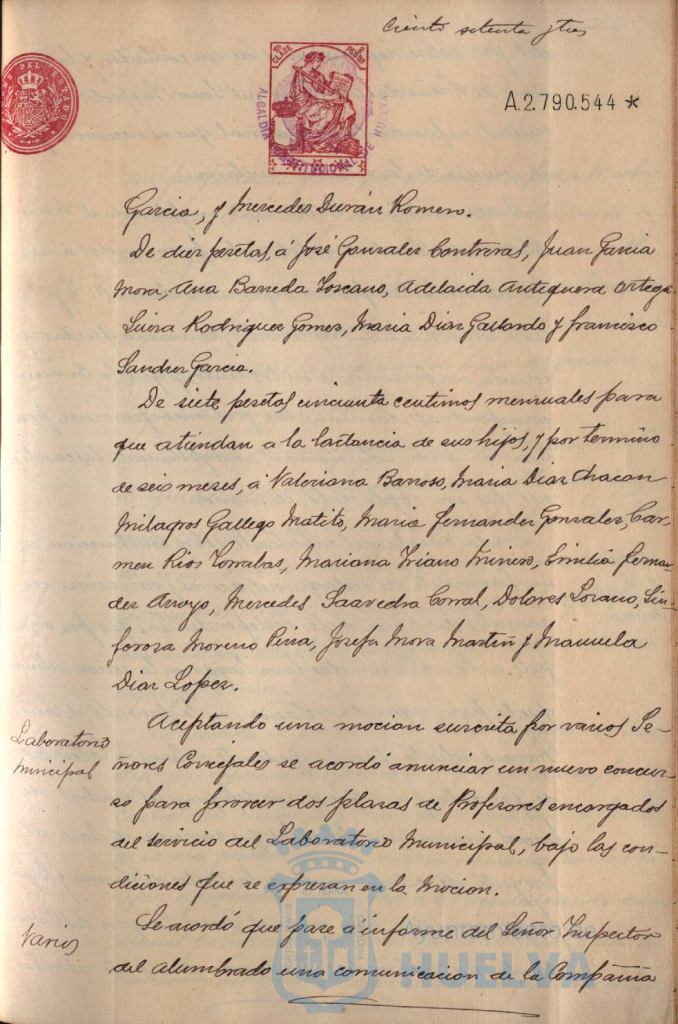 Ciento setenta y tres
CLASE
PESETAS
ALCALDIA CONSTITUCIONAL DE HUELVA
DEL ESTADO
A.2.790.544 *
Garcia, y Mercedes Durán Romero.
De diez pesetas, á José Gonzalez Contreras, Juan Garcia
Mora, Ana Barreda Toscano, Adelaida Antequera Ortega
Luisa Rodriguez Gomez, Maria Diaz Gallardo y francisco
Sanchez Garcia.
De siete pesetas cincuenta centimos mensuales para
que atiendan a la lactancia de sus hijos, y por termino
de seis meses, á Valeriana Barroso, Maria Diaz Chacon
Milagros Gallego Matito, Maria fernandez Gonzalez, Car-
men Rios Torralbas, Mariana Triano Minero, Emilia fernan-
dez Arroyo, Mercedes Saavedra Corral, Dolores Lozano, Sin-
foroza Moreno Peria, Josefa Mora Martin y Manuela
Diaz Lopez.
Laboratorio
Municipal
Aceptando una mocion suscrita por varios Se-
ñores Concejales se acordó anunciar un nuevo concur-
so para proveer dos plazas de Profesores encargados
del servicio del Laboratorio Municipal, bajo las con-
diciones que se expresan en la Mocion.
Varios
Se acordó que pase á informe del Señor Inspector
del alumbrado una comunicacion de la Compañia
HUELVA